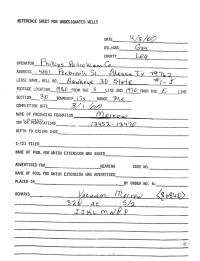 REFERENCE SHEET FOR UNDESIGNATED WELLS
DATE 4/5/00
OIL/GAS Gas
COUNTY Lea
OPERATOR Phillips Petroleum Co.
ADDRESS 4001 Penbrook St. Odessa Tx 79762
LEASE NAME, WELL NO. 30 State
FOOTAGE LOCATION 1980 FROM THE S LINE AND 1970 FROM THE E LINE
SECTION 30 TOWNSHIP 17s RANGE 34e
COMPLETION DATE 3/1/00
NAME OF PRODUCING FORMATION Morrow
TOP OF PERFORATIONS 13452 - 13470
DEPTH TO CASING SHOE
C-123 FILED
NAME OF POOL FOR WHICH EXTENSION WAS ASKED
ADVERTISED FOR HEARING CASE NO.
NAME OF POOL FOR WHICH EXTENSION WAS ADVERTISED
PLACED IN BY ORDER NO. R-
REMARKS Vacuum Morrow
320 ac S/2
IJKLMNOP